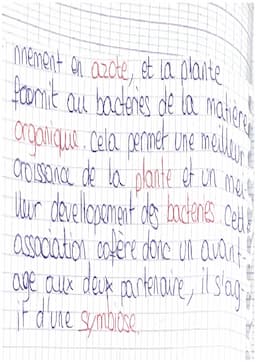 nnement en azote, et la plante
fournit au bactéries de la matière
organique. Cela permet une meilleur
croissance de la plante et un mei-
lleur developpement des bacteries. Cett
association cofère donc un avant-
age aux deux partenaire, il s'ag-
it d'une symbiose.